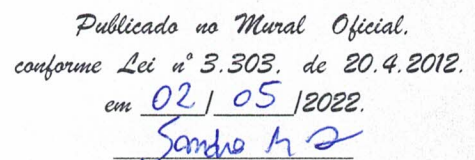 Publicado no Mural Oficial.
conforme Lei nº 3.303, de 20.4.2012.
em 02/05/2022.